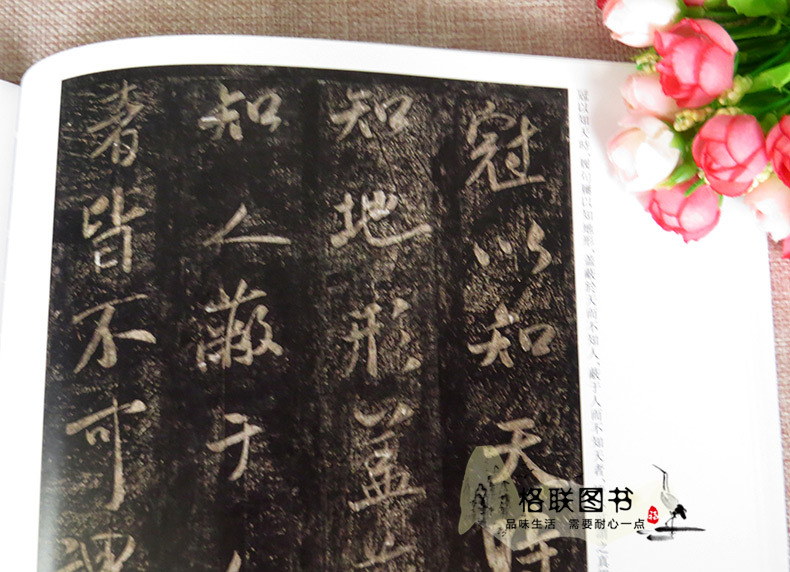 冠以知天時
知地形盖
知人蔽于人
者皆不可謂
冠以知天時、句屨以知地形、盖蔽於天而不知人、蔽于人而不知天者、之真
格联图书
品味生活 需要耐心一点